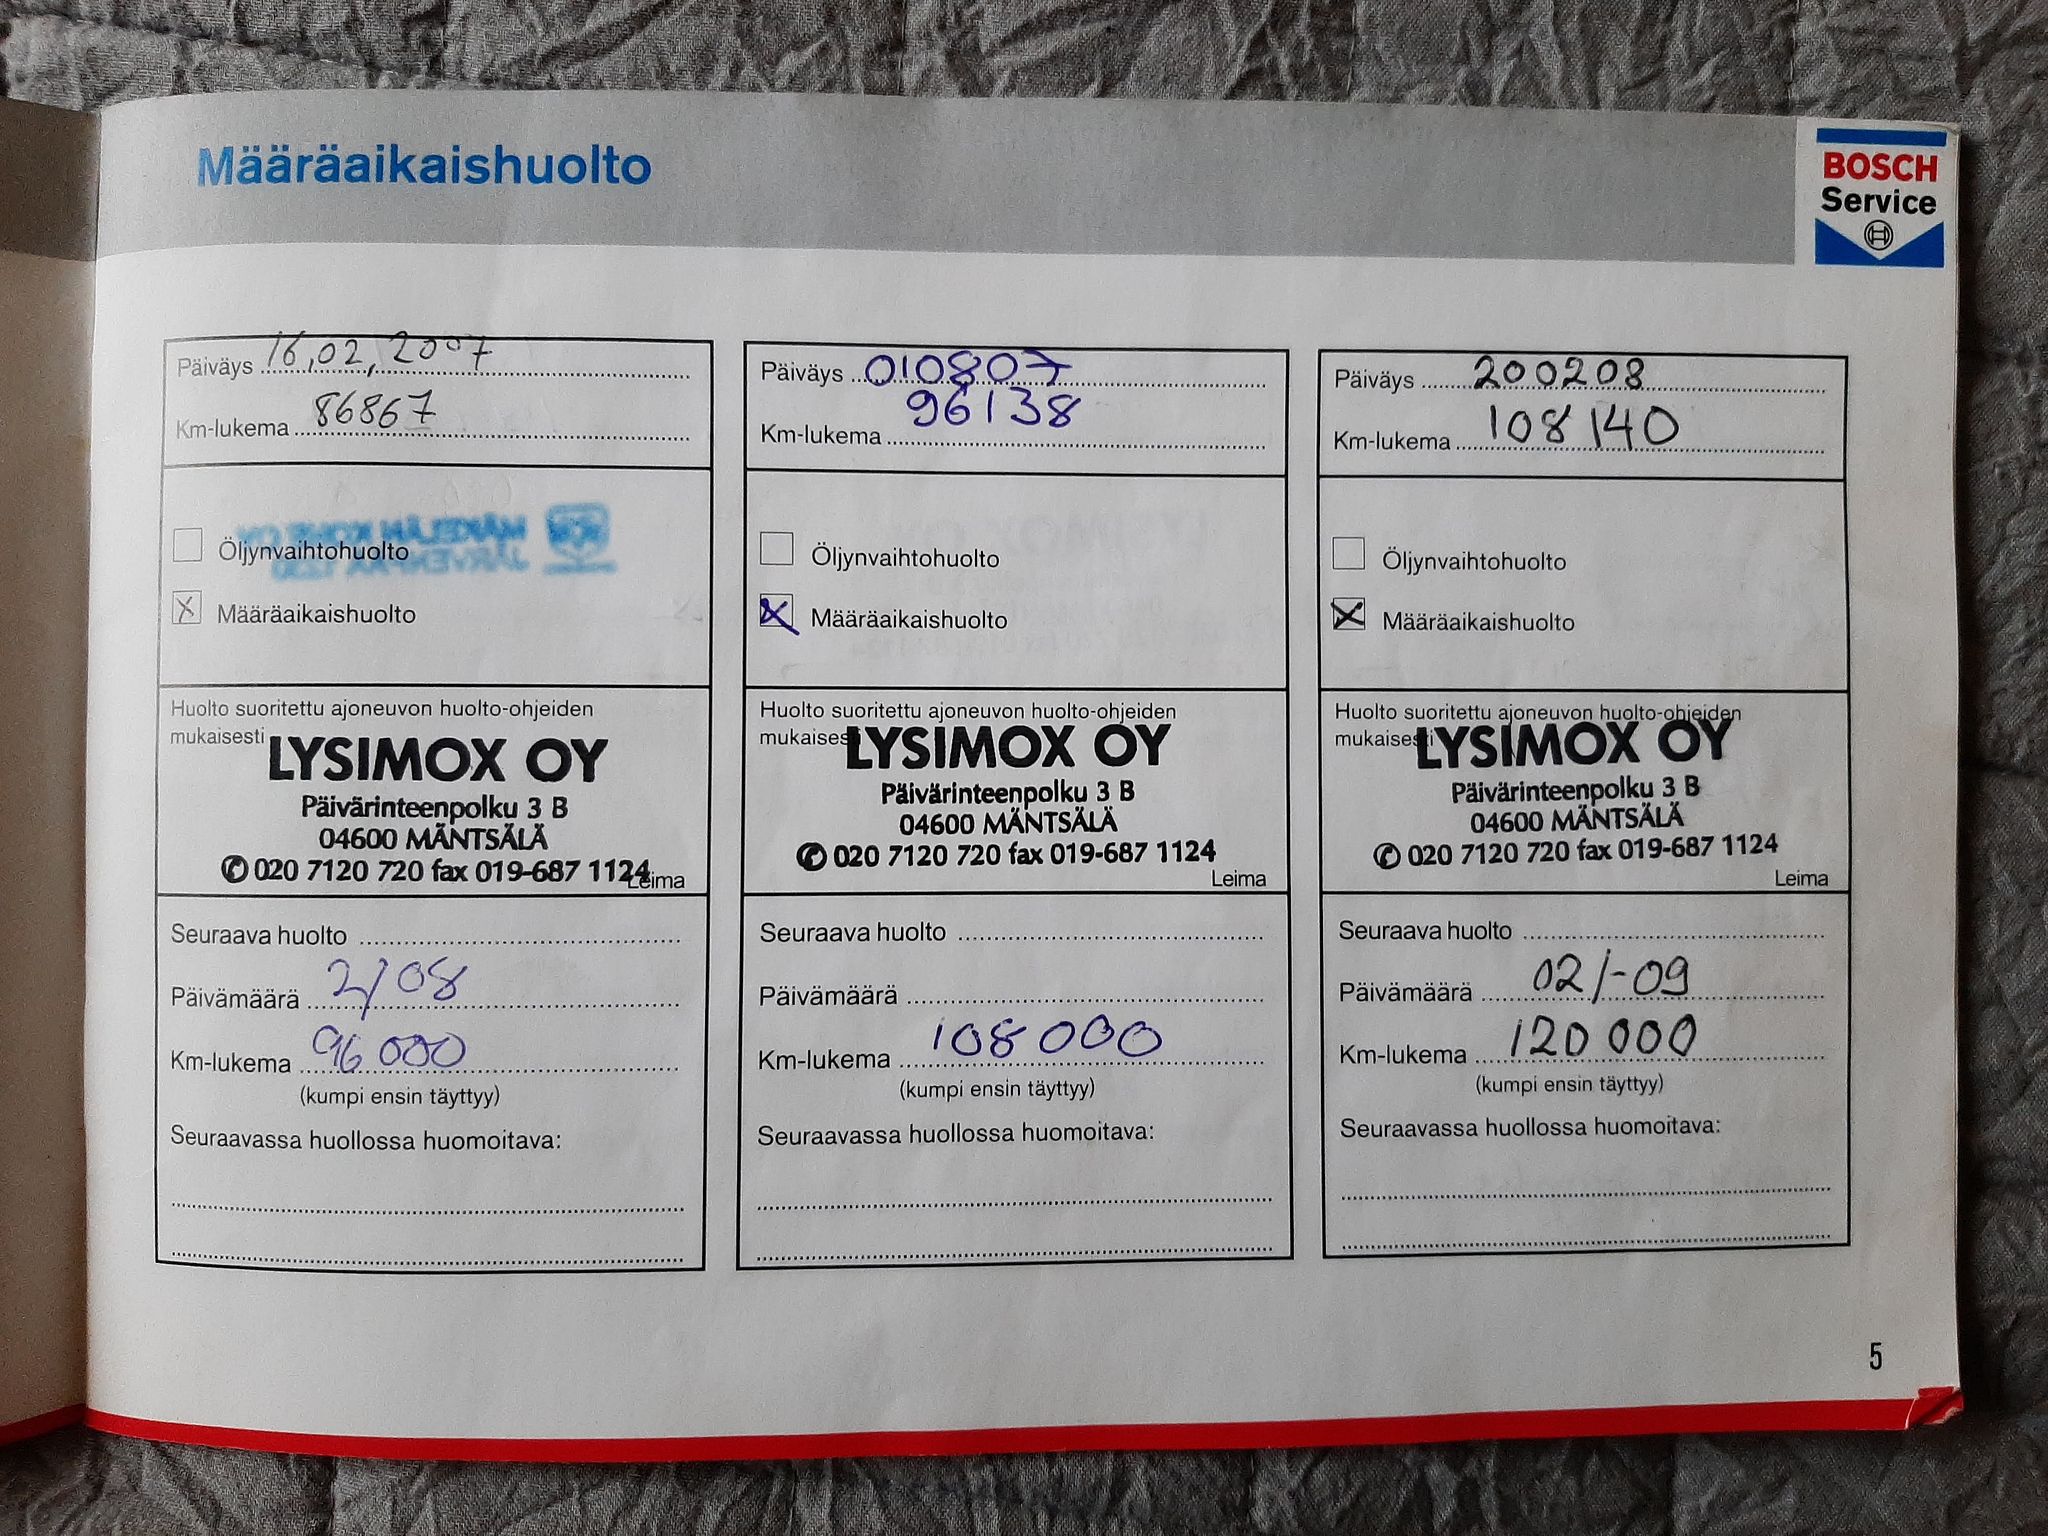 Määräaikaishuolto
BOSCH
Service
Päiväys 16,02,2007
Km-lukema 86867
Öljynvaihtohuolto
Määräaikaishuolto
Huolto suoritettu ajoneuvon huolto-ohjeiden
mukaisesti
LYSIMOX OY
Päivärinteenpolku 3 B
04600 MÄNTSÄLÄ
✆ 020 7120 720 fax 019-687 1124
Leima
Seuraava huolto
Päivämäärä 2/08
Km-lukema 96000
(kumpi ensin täyttyy)
Seuraavassa huollossa huomoitava:
Päiväys 010807
Km-lukema 96138
Öljynvaihtohuolto
Määräaikaishuolto
Huolto suoritettu ajoneuvon huolto-ohjeiden
mukaisesti
LYSIMOX OY
Päivärinteenpolku 3 B
04600 MÄNTSÄLÄ
✆ 020 7120 720 fax 019-687 1124
Leima
Seuraava huolto
Päivämäärä
Km-lukema 108 000
(kumpi ensin täyttyy)
Seuraavassa huollossa huomoitava:
Päiväys 200208
Km-lukema 108140
Öljynvaihtohuolto
Määräaikaishuolto
Huolto suoritettu ajoneuvon huolto-ohjeiden
mukaisesti
LYSIMOX OY
Päivärinteenpolku 3 B
04600 MÄNTSÄLÄ
✆ 020 7120 720 fax 019-687 1124
Leima
Seuraava huolto
Päivämäärä 02/-09
Km-lukema 120 000
(kumpi ensin täyttyy)
Seuraavassa huollossa huomoitava:
5